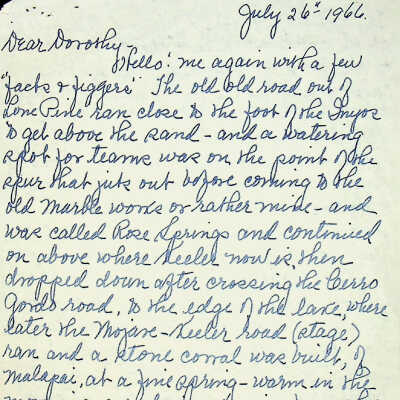 July 26" 1966.
Dear Dorothy,
Hello! me again with a few
"facts & figgers" The old old road out of
Lone Pine ran close to the foot of the Inyos
to get above the sand - and a watering
spot for teams was on the point of the
spur that juts out before coming to the
old Marble works or rather mine - and
was called Rose Springs and continued
on above where Keeler now is, then
dropped down after crossing the Cerro
Gordo road, to the edge of the lake, where
later the Mojave-Keeler road (stage)
ran and a stone corral was built, of
malapai, at a fine spring - warm in the